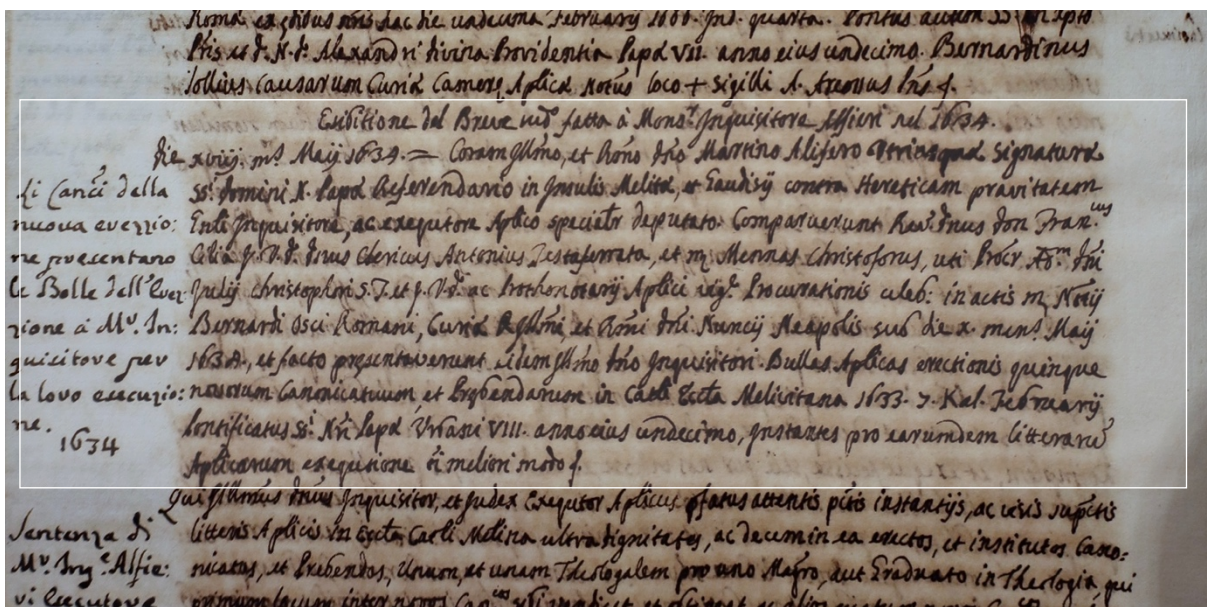 Roma ex ædibus nris hac die undecima February 1666. Ind. quarta. Pontus autem SS in Xpto
Ptis et d. N. d. Alexandri divina Providentia Papæ VII. anno eius undecimo. Bernardinus
Lollius Causarum Curiæ Cameræ Aplicæ Notus loco + sigilli A.
Esibitione del Breve fatta à Mons.r Inquisitore Alfieri nel 1634.
die xviij. ms Maij 1634. = Coram Illmo, et Rmo Dno Martino Alifero Utriusque Signaturæ
SS. Domini N. Papæ Referendario in Insulis Melitæ, et Gaudisij contra Hereticam pravitatem
Gnli Inquisitore, ac exequutore Aplico specialr deputato. Comparuerunt Rev. Dnus Don Fran.cus
Cilia J. V. D. Dnus Clericus Antonius Testaferrata, et Mennas Christoforus, uti Procr Dni
Julij Christophori S. T. et J. V. D. ac Prothonotarij Aplici vig. Procurationis celeb: in actis m. Notij
Bernardi Osci Romani, Curiæ Illmi, et Rmi Dni Nuncij Neapolis sub die x. mens. Maij
1634, et facto presentaverunt eidem Illmo Dno Inquisitori Bullas Aplicas erectionis quinque
novorum Canonicatuum, et Præbendarum in Catli Eccla Melivitana 1633. 7. Kal. February
Pontificatus SS. Nri Papæ Urbani VIII. anno eius undecimo, Instantes pro earumdem litterarũ
Aplicarum exequtione oi meliori modo
li Canci della
nuova erezzio:
ne presentano
le Bolle dell'Erez
zione à Mr. In:
quisitore per
la loro esecuzio:
ne.
1634
Qui Illmus Dnus Inquisitor, et Judex Exequtor Aplicus pfatus attentis pitis instantijs, ac visis supctis
litteris Aplicis in Eccla Catli Melina ultra dignitates, ac decem in ea erectos, et institutos Cano:
nicatus, et Prebendas, Unum, et unam Theologalem pro uno Magro, aut Graduato in Theologia, qui
primum locum inter novos
Sentenza di
Mr. Inqe. Alfie:
ri Esecutore